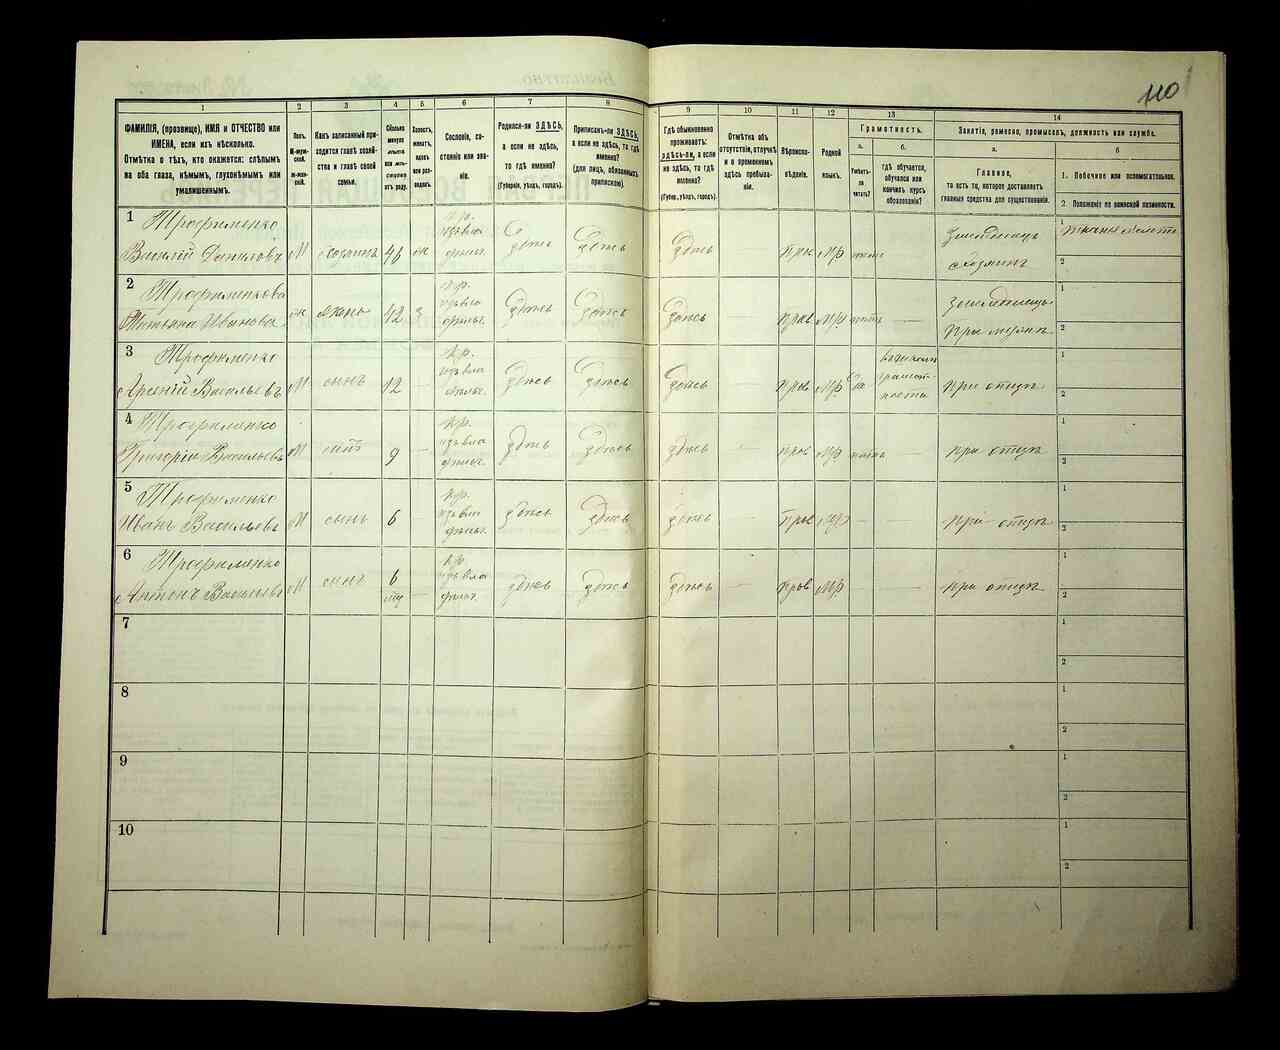 110
1
2
3
4
5
6
7
8
9
10
11
12
13
14
ФАМИЛІЯ, (прозвище), ИМЯ и ОТЧЕСТВО или
ИМЕНА, если ихъ нѣсколько.
Отмѣтка о тѣхъ, кто окажется: слѣпымъ
на оба глаза, нѣмымъ, глухонѣмымъ или
умалишеннымъ.
Полъ.
М-муж-
ской.
Ж-жен-
скій.
Какъ записанный при-
ходится главѣ хозяй-
ства и главѣ своей
семьи.
Сколько
минуло
лѣтъ
или мѣс-
отъ роду.
Холостъ,
женатъ,
вдовъ
или раз-
веденъ.
Сословіе, со-
стояніе или зва-
ніе.
Родился-ли ЗДѢСЬ,
а если не здѣсь,
то гдѣ именно?
(Губернія, уѣздъ, городъ).
Приписанъ-ли ЗДѢСЬ,
а если не здѣсь, то гдѣ
именно?
(для лицъ, обязанныхъ
припискою).
Гдѣ обыкновенно
проживаетъ:
ЗДѢСЬ-ли, а если
не здѣсь, то гдѣ
именно?
(Губерн., уѣздъ, городъ).
Отмѣтка объ
отсутствіи, отлучкѣ
и о временномъ
здѣсь пребыва-
ніи.
Вѣроиспо-
вѣданіе.
Родной
языкъ.
Грамотность.
а.
Умѣетъ-
ли
читать?
б.
гдѣ обучается,
обучался или
кончилъ курсъ
образованія?
Занятіе, ремесло, промыселъ, должность или служба.
а.
Главное,
то есть то, которое доставляетъ
главныя средства для существованія.
б
1. Побочное или вспомогательное.
2. Положеніе по воинской повинности.
1
Трофименко
Василій Даниловъ М хозяинъ 46 ж
кр.
изъ вла
дѣльч.
здѣсь здѣсь здѣсь — МР нѣтъ —
земледѣлецъ
хозяинъ
1
2
2
Трофименкова
Татьяна Иванова ж жена 42 з
кр.
изъ вла
дѣльч.
здѣсь здѣсь здѣсь — прав МР нѣтъ —
земледѣлецъ
при мужѣ
1
2
3
Трофименко
Арсеній Васильевъ М сынъ 12 —
кр.
изъ вла
дѣльч.
здѣсь здѣсь здѣсь — прав МР да
грамот-
при отцѣ
1
2
4
Трофименко
Григорій Васильевъ М сынъ 9 —
кр.
изъ вла
дѣльч.
здѣсь здѣсь здѣсь — прав МР нѣтъ —
при отцѣ
1
2
5
Трофименко
Иванъ Васильевъ М сынъ 6 —
кр.
изъ вла
дѣльч.
здѣсь здѣсь здѣсь — прав МР — —
при отцѣ
1
2
6
Трофименко
Антонъ Васильевъ М сынъ 6
кр
изъ вла
дѣльч.
здѣсь здѣсь здѣсь — прав МР — —
при отцѣ
1
2
7
1
2
8
1
2
9
1
2
10
1
2